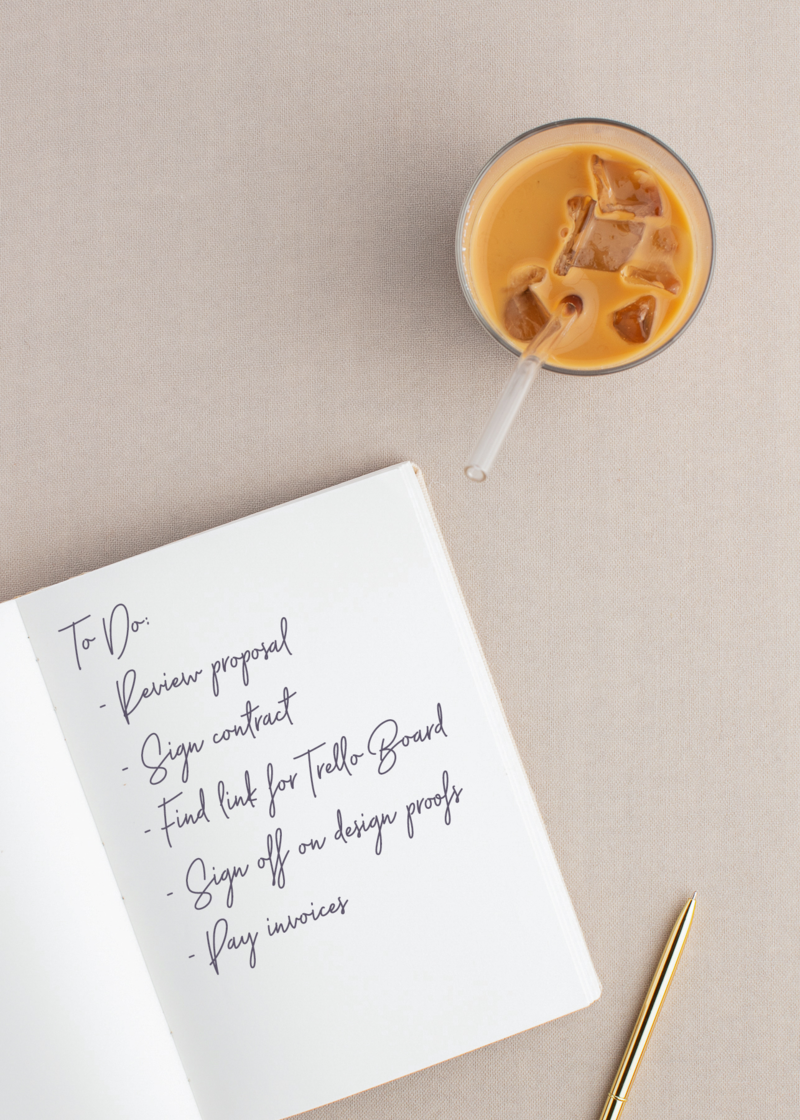 To Do:
- Review proposal
- Sign contract
- Find link for Trello Board
- Sign off on design proofs
- Pay invoices